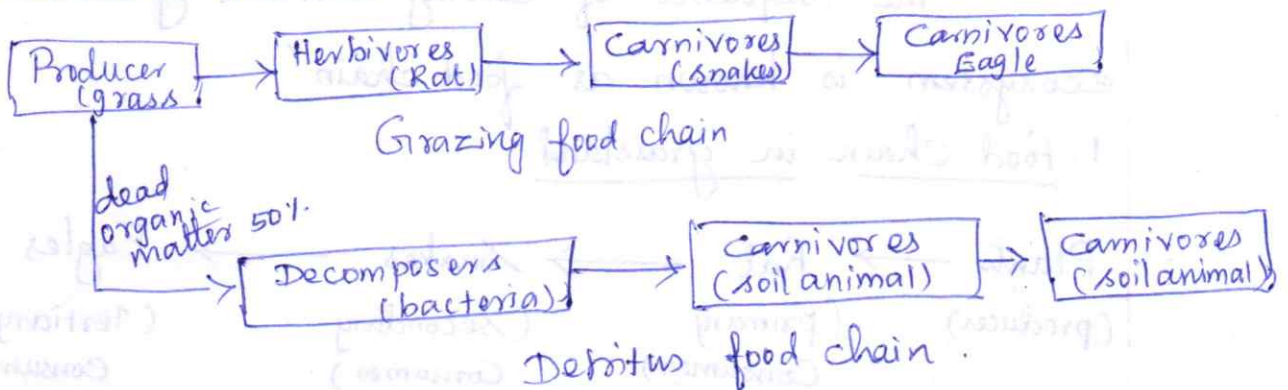 Producer
(grass
Herbivores
(Rat)
Carnivores
(snakes)
Carnivores
Eagle
Grazing food chain
dead
organic
matter 50%.
Decomposers
(bacteria)
Carnivores
(soil animal)
Carnivores
(soil animal)
Detritus food chain.